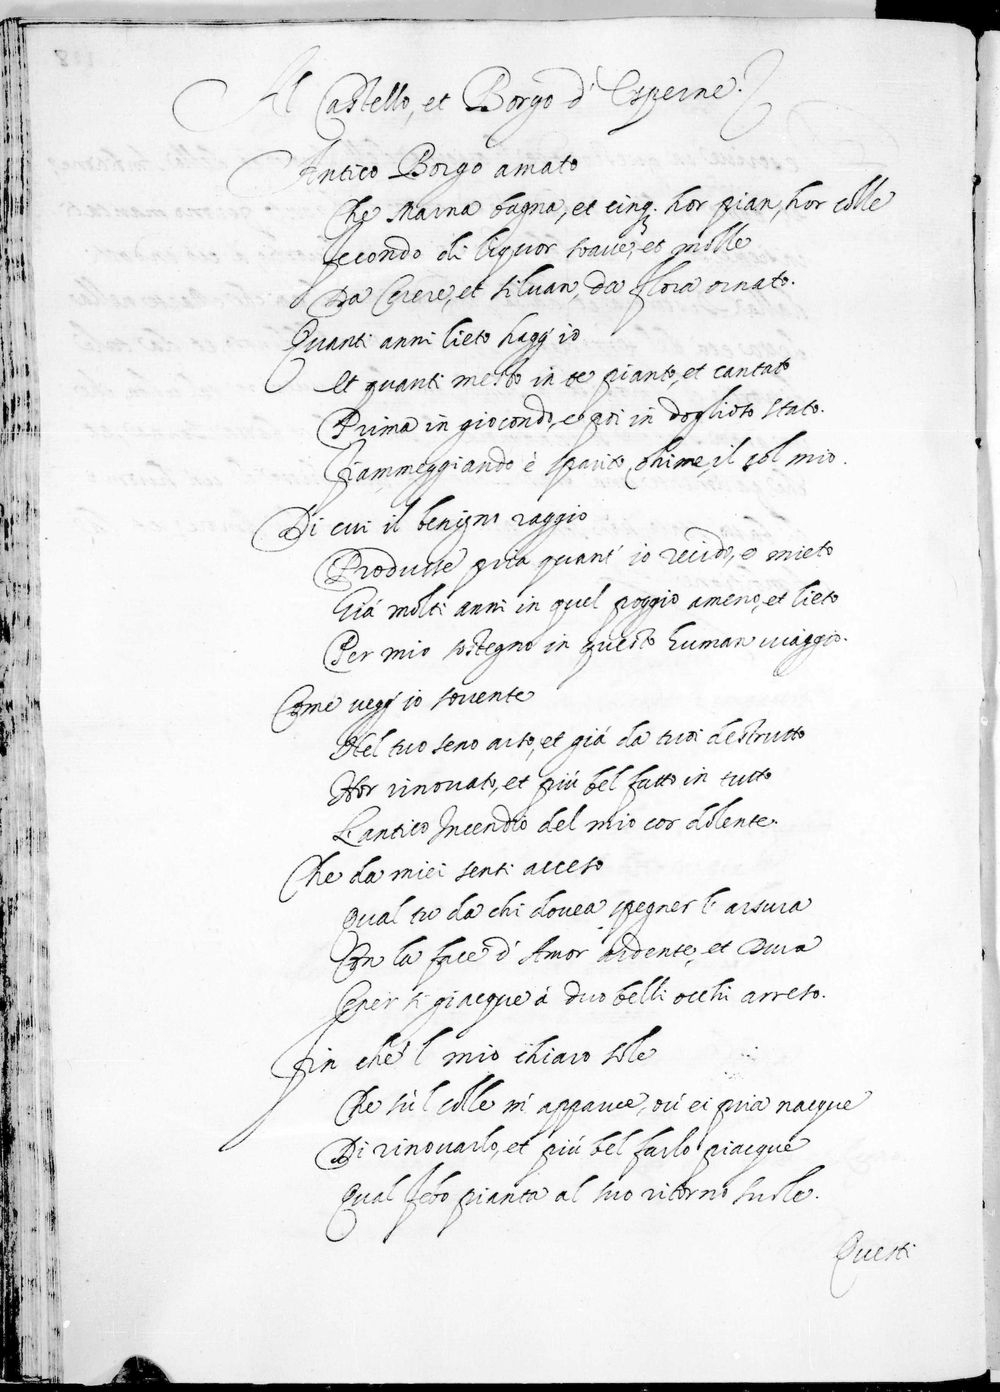 Al Castello, et Borgo d'Esperne.
Antico Borgo amato
Che Marna bagna, et cing. hor pian, hor colle
Fecondo di liquor soave, et molle
Da Cerere, et Silvan, da Flora ornato.
Quanti anni lieto hagg'io
Et quanti mesto in te pianto, et cantato
Prima in giocondo, e poi in doglioso stato.
Fiammeggiando è sparito, ohime, il sol mio.
Di cui il benigno raggio
Produsse pria quant'io recido, e mieto
Giá molti anni in quel poggio ameno, et lieto
Per mio sostegno in questo human viaggio.
Come vegg'io sovente
Nel tuo seno arso, et giá da tuoi destrutto
Hor rinovato, et piú bel fatto in tutto
L'antico Incendio del mio cor dolente.
Che da miei sensi acceso
Qual tu da chi dovea spegner l'arsura
Con la face d'Amor ardente, et dura
Cener si giacque á duo belli occhi arreso.
Fin che'l mio chiaro sole
Che sú'l colle m'apparve, ov'ei pria nacque
Di rinovarlo, et piú bel farlo piacque
Qual Febo pianta al suo ritorno suole.
Questi